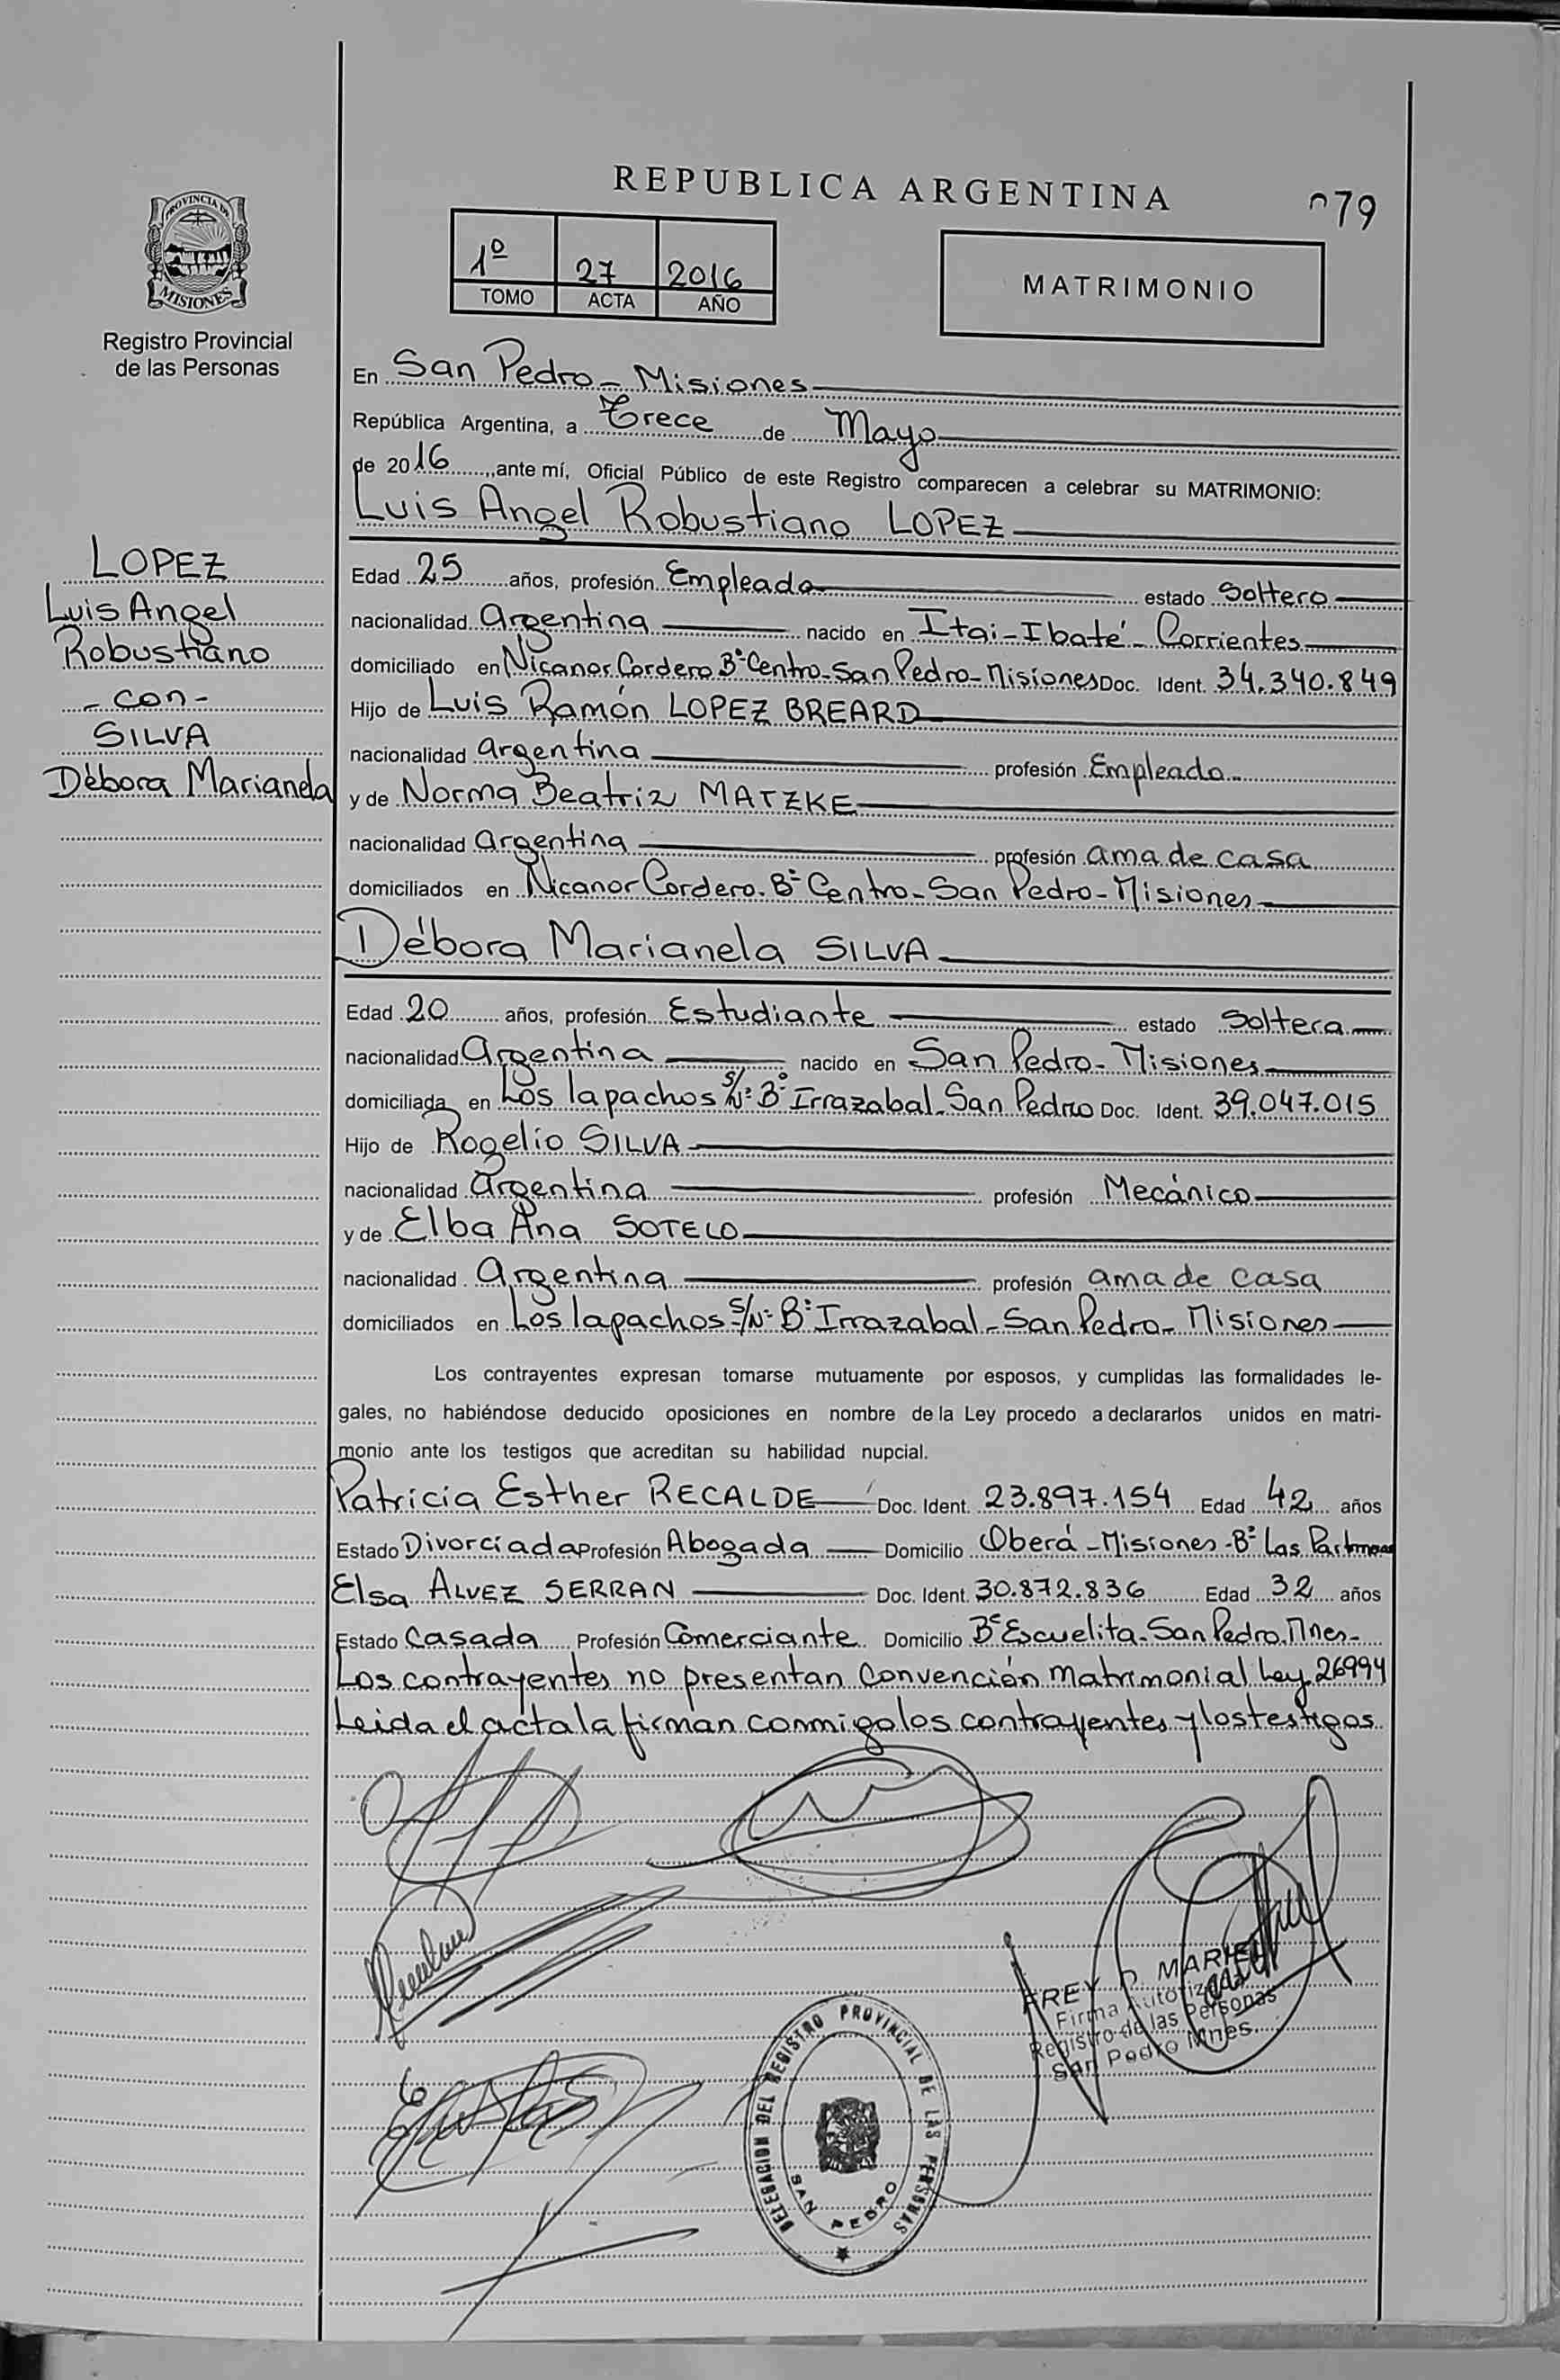 REPUBLICA ARGENTINA
079
PROVINCIA DE
MISIONES
Registro Provincial
de las Personas
1º 27 2016
TOMO ACTA AÑO
MATRIMONIO
En San Pedro - Misiones
República Argentina, a Trece de Mayo
de 2016, ante mí, Oficial Público de este Registro comparecen a celebrar su MATRIMONIO:
Luis Angel Robustiano LOPEZ
LOPEZ
Luis Angel
Robustiano
- con -
SILVA
Débora Marianela
Edad 25 años, profesión Empleado estado Soltero
nacionalidad Argentina nacido en Itai-Ibaté - Corrientes
domiciliado en Nicanor Cordero Bº Centro - San Pedro - Misiones Doc. Ident. 34.340.849
Hijo de Luis Ramón LOPEZ BREARD
nacionalidad argentina profesión Empleado
y de Norma Beatriz MATZKE
nacionalidad argentina profesión ama de casa
domiciliados en Nicanor Cordero - Bº Centro - San Pedro - Misiones
Débora Marianela SILVA
Edad 20 años, profesión Estudiante estado Soltera
nacionalidad Argentina nacido en San Pedro - Misiones
domiciliada en Los lapachos S/Nº Bº Irrazabal - San Pedro Doc. Ident. 39.047.015
Hijo de Rogelio SILVA
nacionalidad Argentina profesión Mecánico
y de Elba Ana SOTELO
nacionalidad Argentina profesión ama de casa
domiciliados en Los lapachos S/Nº Bº Irrazabal - San Pedro - Misiones
Los contrayentes expresan tomarse mutuamente por esposos, y cumplidas las formalidades le-
gales, no habiéndose deducido oposiciones en nombre de la Ley procedo a declararlos unidos en matri-
monio ante los testigos que acreditan su habilidad nupcial.
Patricia Esther RECALDE Doc. Ident. 23.897.154 Edad 42 años
Estado Divorciada Profesión Abogada Domicilio Oberá - Misiones - Bº Las
Elsa ALVEZ SERRAN Doc. Ident. 30.872.836 Edad 32 años
Estado Casada Profesión Comerciante Domicilio Bº Escuelita - San Pedro. Mnes-
Los contrayentes no presentan Convención Matrimonial Ley 26994
Leida el acta la firman conmigo los contrayentes y los testigos
FREY D. MARIEL
Firma Autorizada
Registro de las Personas
San Pedro Mnes.
DELEGACION DEL REGISTRO PROVINCIAL DE LAS PERSONAS
SAN PEDRO